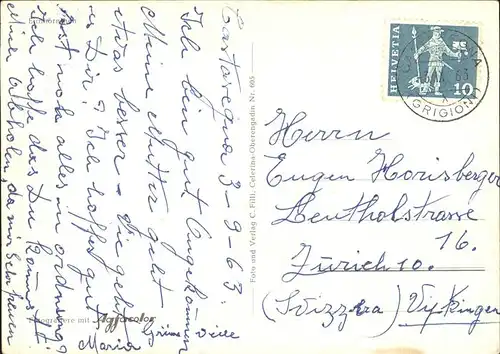 Castasegna 3-9-63.
Ich bin gut Angekommen
Meine Mutter geht
etwas besser - Wie geht
es Dir? Ich hoffe gut
ist noch alles in ordnung?
Ich hoffe das Du kannst
mich abholen, da mir sehr freuen
Grüsse Viele
Maria
Fotografiere mit Agfacolor
Foto und Verlag C. Filli, Celerina-Oberengadin. Nr. 605
HELVETIA
10
GRIGIONI
Herrn
Eugen Horisberger
Leutholstrasse
16.
Zürich 10.
(Svizzera) Wipkingen